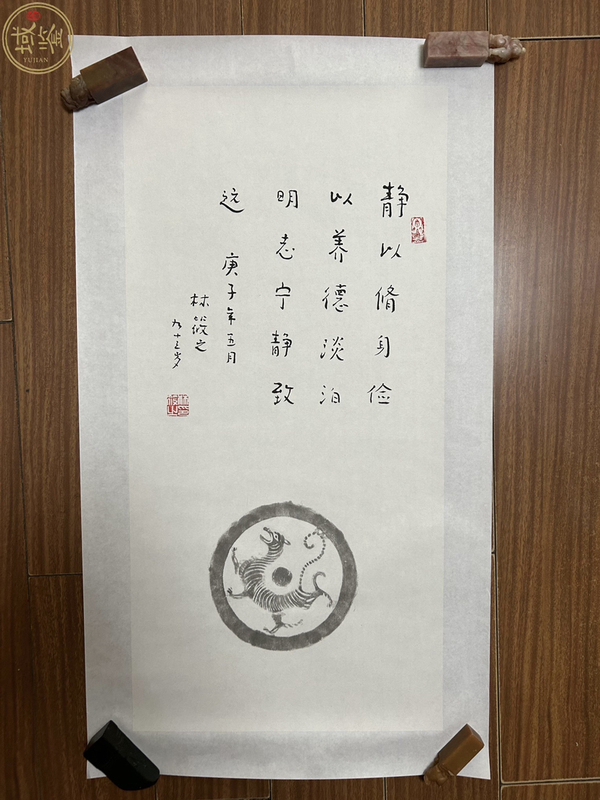 静以脩身俭
以养德淡泊
明志宁静致
远 庚子年五月
林筱之
九十三岁
YUJIAN